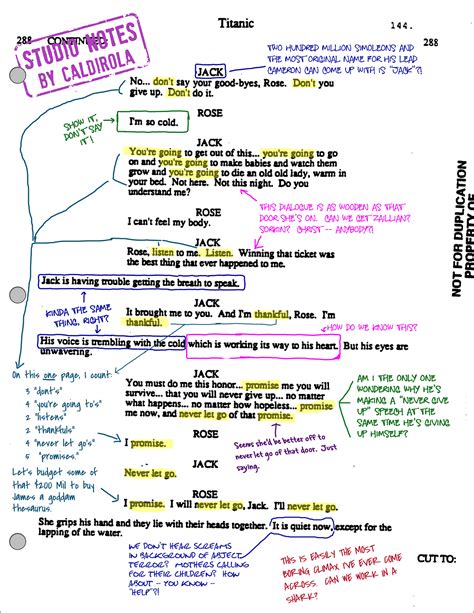 Titanic
144.
288 CONTINUED
288
STUDIO NOTES
BY CALDIROLA
TWO HUNDRED MILLION SIMOLEONS AND
THE MOST ORIGINAL NAME FOR HIS LEAD
CAMERON CAN COME UP WITH IS "JACK"?!
JACK
No... don't say your good-byes, Rose. Don't you
give up. Don't do it.
SHOW IT,
DON'T SAY
IT!
ROSE
I'm so cold.
JACK
You're going to get out of this... you're going to go
on and you're going to make babies and watch them
grow and you're going to die an old old lady, warm in
your bed. Not here. Not this night. Do you
understand me?
THIS DIALOGUE IS AS WOODEN AS THAT
DOOR SHE'S ON. CAN WE GET ZALLIAN?
SORKIN? CHRIST -- ANYBODY?!
ROSE
I can't feel my body.
NOT FOR DUPLICATION
PROPERTY OF
JACK
Rose, listen to me. Listen. Winning that ticket was
the best thing that ever happened to me.
Jack is having trouble getting the breath to speak.
KINDA THE SAME
THING, RIGHT?
JACK
It brought me to you. And I'm thankful, Rose. I'm
thankful.
HOW DO WE KNOW THIS?
His voice is trembling with the cold which is working its way to his heart. But his eyes are
unwavering.
On this one page, I count:
3 "dont's"
4 "you're going to's"
2 "listens"
2 "thankfuls"
4 "never let go's"
5 "promises."
Let's budget some of
that $200 Mil to buy
James a goddam
thesaurus.
JACK
You must do me this honor... promise me you will
survive... that you will never give up... no matter
what happens... no matter how hopeless... promise
me now, and never let go of that promise.
AM I THE ONLY ONE
WONDERING WHY HE'S
MAKING A "NEVER GIVE
UP" SPEECH AT THE
SAME TIME HE'S GIVING
UP HIMSELF?
ROSE
I promise.
Seems she'd be better off to
never let go of that door. Just
saying.
JACK
Never let go.
ROSE
I promise. I will never let go, Jack. I'll never let go.
She grips his hand and they lie with their heads together. It is quiet now, except for the
lapping of the water.
WE DON'T HEAR SCREAMS
IN BACKGROUND OF ABJECT
TERROR? MOTHERS CALLING
FOR THEIR CHILDREN? HOW
ABOUT -- YOU KNOW --
"HELP"?!
THIS IS EASILY THE MOST
BORING CLIMAX I'VE EVER COME
ACROSS. CAN WE WORK IN A
SHARK?
CUT TO: